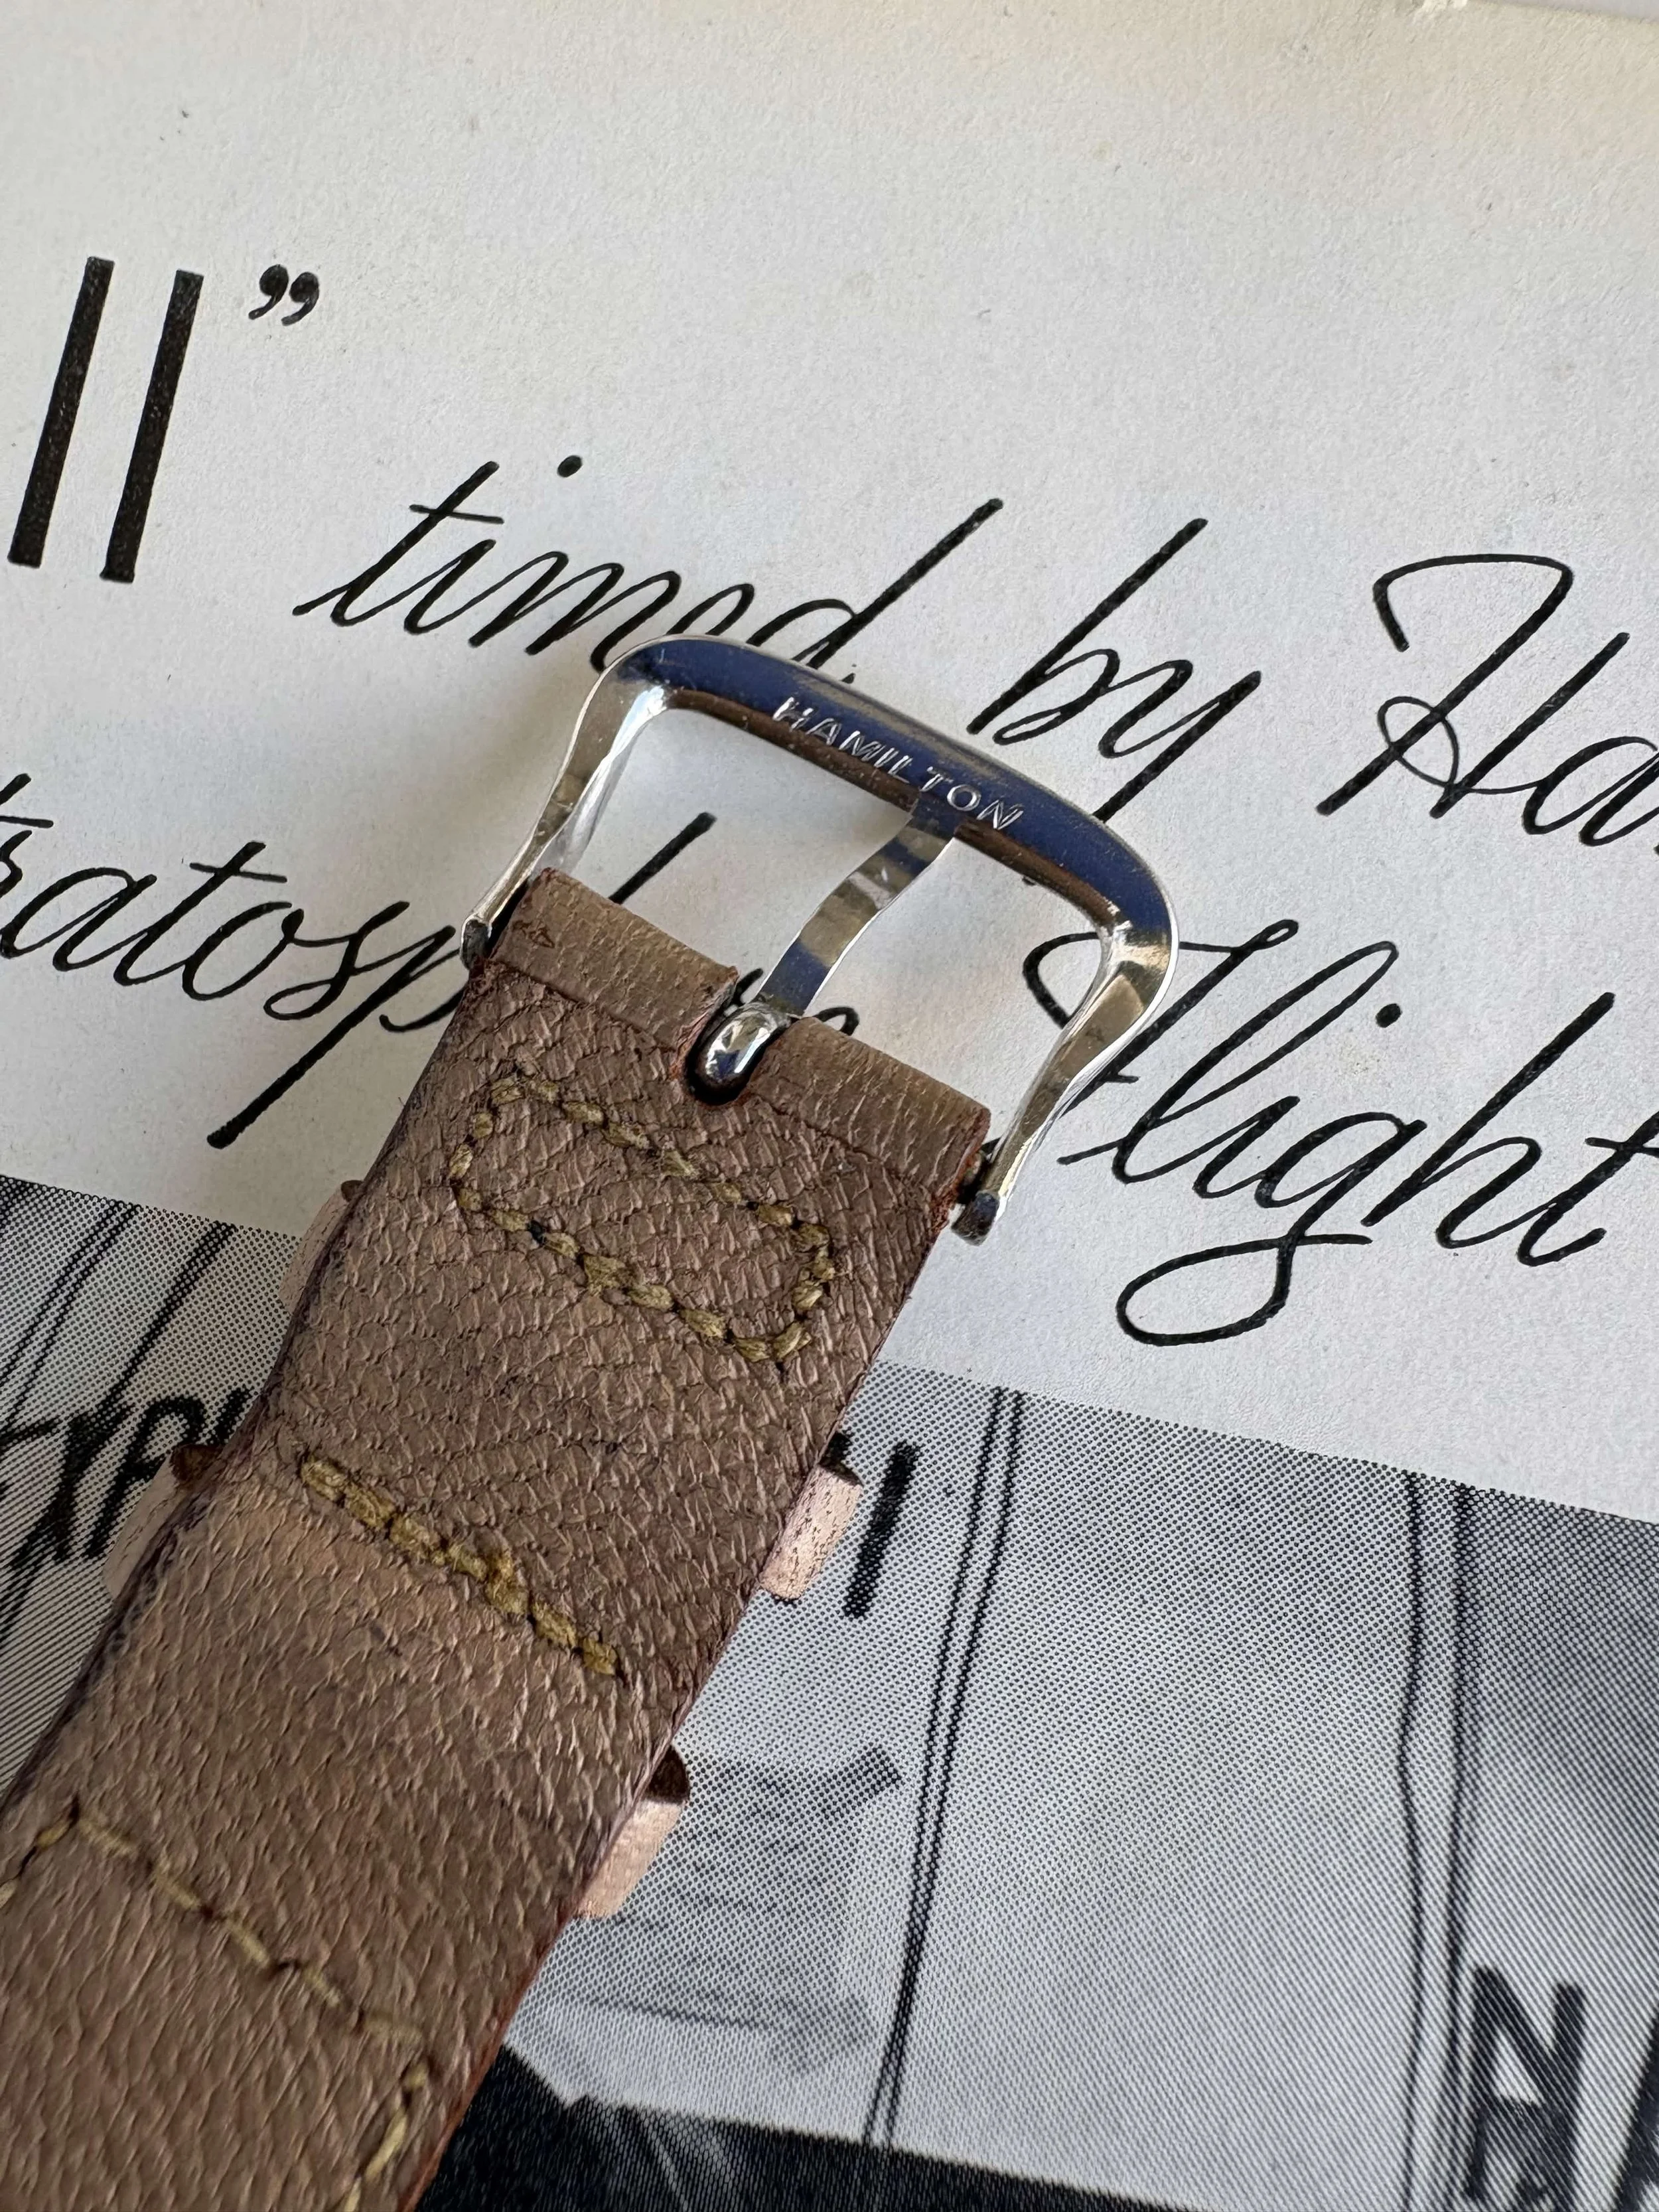 ll” timed by Ha
tratosp e Flight
HAMILTON
EXPL
N